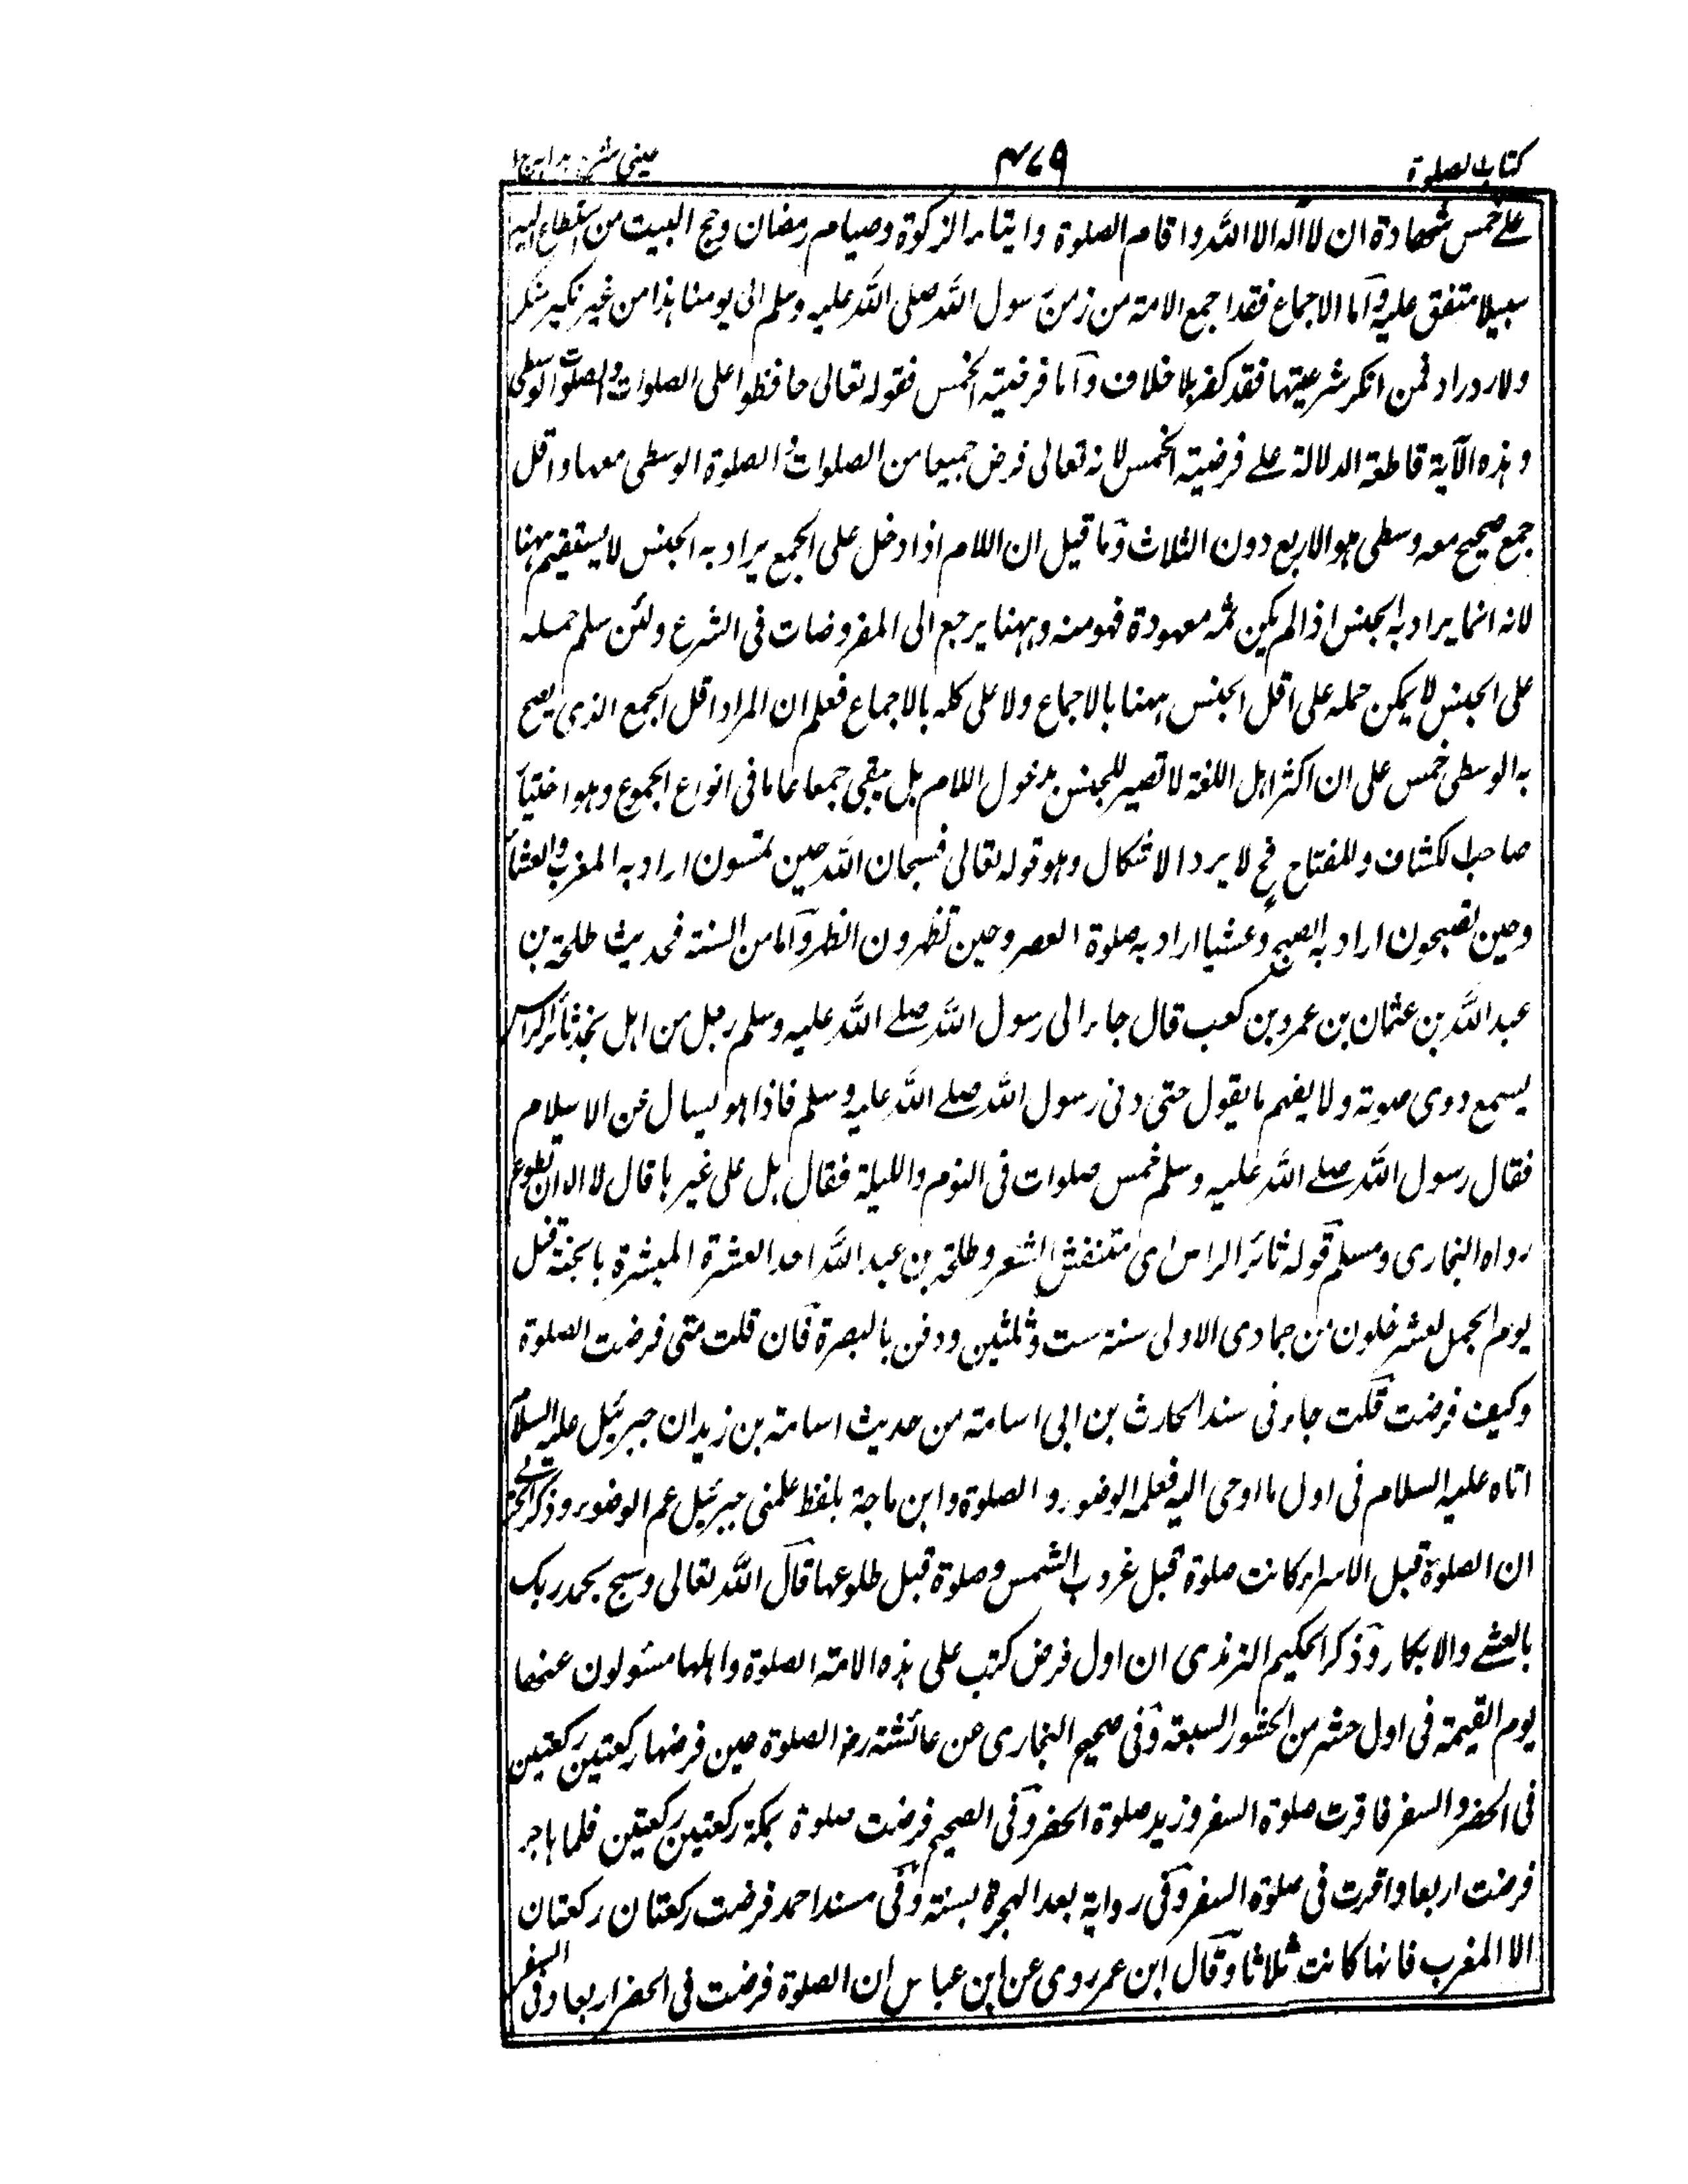 كتاب الصلوة
٤٧٩
عيني شرح هدايه ج ١
علے خمس شهادة ان لا اله الا الله واقام الصلوة وايتاء الزكوة وصيام رمضان وحج البيت من استطاع اليه
سبيلا متفق عليه وآما الاجماع فقد اجمع الامة من زمن رسول الله صلى الله عليه وسلم الى يومنا هذا من غير نكير منكر
ولا رد راد فمن انكر شرعيتها فقد كفر بلا خلاف وآما فرضية الخمس فقوله تعالى حافظوا على الصلوات والصلوة الوسطى
وهذه الآية قاطعة الدلالة علے فرضية الخمس لانه تعالى فرض جميعا من الصلوات والصلوة الوسطى معها واقل
جمع صحيح معه وسطى هو الاربع دون الثلاث وما قيل ان اللام اذا دخل على الجمع يراد به الجنس لا يستقيم ههنا
لانه انما يراد به الجنس اذا لم يكن ثمه معهودة فهو منه وههنا يرجع الى المفروضات فى الشرع ولئن سلم حمله
على الجنس لا يمكن حمله على اقل الجنس ههنا بالاجماع ولا على كله بالاجماع فعلم ان المراد اقل الجمع الذى يصح
به الوسطى خمس على ان اكثر اهل اللغة لا تصير للجنس بدخول اللام بل يبقى جمعا عاما فى انواع الجموع وهو اختيا
صاحب الكشاف وللمفتاح فح لا يرد الاشكال وهو قوله تعالى فسبحان الله حين تمسون اراد به المغرب والعشاء
وحين تصبحون اراد به الصبح وعشيا اراد به صلوة العصر وحين تظهرون الظهر وآما من السنة فحديث طلحة بن
عبد الله بن عثمان بن عمرو بن كعب قال جاء الى رسول الله صلے الله عليه وسلم رجل من اهل نجد ثائر الراس
يسمع دوى صوته ولا يفهم ما يقول حتى دنى رسول الله صلے الله عليه وسلم فاذا هو يسال عن الاسلام
فقال رسول الله صلے الله عليه وسلم خمس صلوات فى اليوم والليلة فقال هل على غيرها قال لا الا ان تطوع
رواه البخارى ومسلم قوله ثائر الراس اى متنفش الشعر وطلحة بن عبد الله احد العشرة المبشرة بالجنة قتل
يوم الجمل لعشر خلون من جمادى الاولى سنة ست وثلثين ودفن بالبصرة فان قلت متى فرضت الصلوة
وكيف فرضت قلت جاء فى سند الحارث بن ابى اسامة من حديث اسامة بن زيد ان جبرئيل عليه السلام
اتاه عليه السلام فى اول ما اوحى اليه فعلمه الوضوء والصلوة وابن ماجة بلفظ علمنى جبرئيل عم الوضوء وذكر الحربى
ان الصلوة قبل الاسراء كانت صلوة قبل غروب الشمس وصلوة قبل طلوعها قال الله تعالى وسبح بحمد ربك
بالعشے والابكار وذكر الحكيم الترمذى ان اول فرض كتب على هذه الامة الصلوة واهلها مسئولون عنها
يوم القيمة فى اول حشر من الحشور السبعة وفى صحيح البخارى عن عائشة رضـ الصلوة حين فرضها ركعتين ركعتين
فى الحضر والسفر فاقرت صلوة السفر وزيد صلوة الحضر وفى الصحيح فرضت صلوة بمكة ركعتين ركعتين فلما هاجر
فرضت اربعا واقرت فى صلوة السفر وفى رواية بعد الهجرة بسنة وفى مسند احمد فرضت ركعتان ركعتان
الا المغرب فانها كانت ثلاثا وقال ابن عمر روى عن ابن عباس ان الصلوة فرضت فى الحضر اربعا وفى السفر